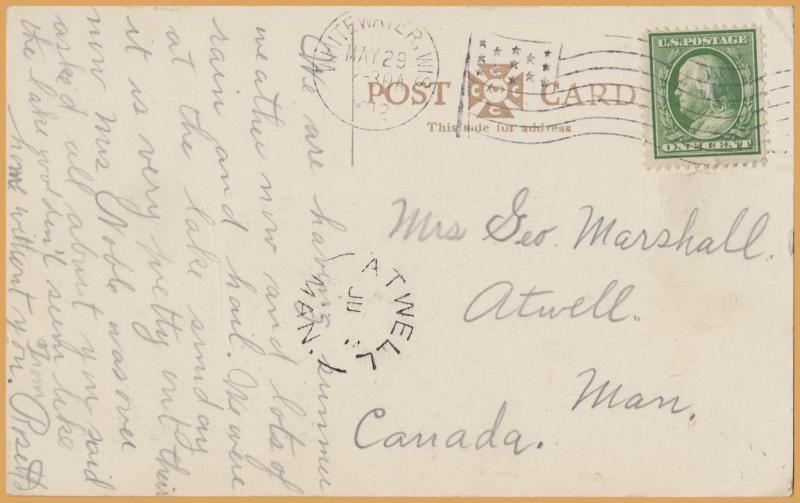 WHITEWATER, WIS
MAY 29
2-30 A
12
U.S. POSTAGE
ONE CENT
POST CARD
This side for address
Mrs Geo. Marshall.
Atwell.
Man.
Canada.
ATWELL
JU
MAN.
We are having summer
weather now and lots of
rain and hail. We were
at the lake sunday
it is very pretty out their
now Mrs Noble was over
ask'd all about you said
the lake woodn't seem like
home without you. From